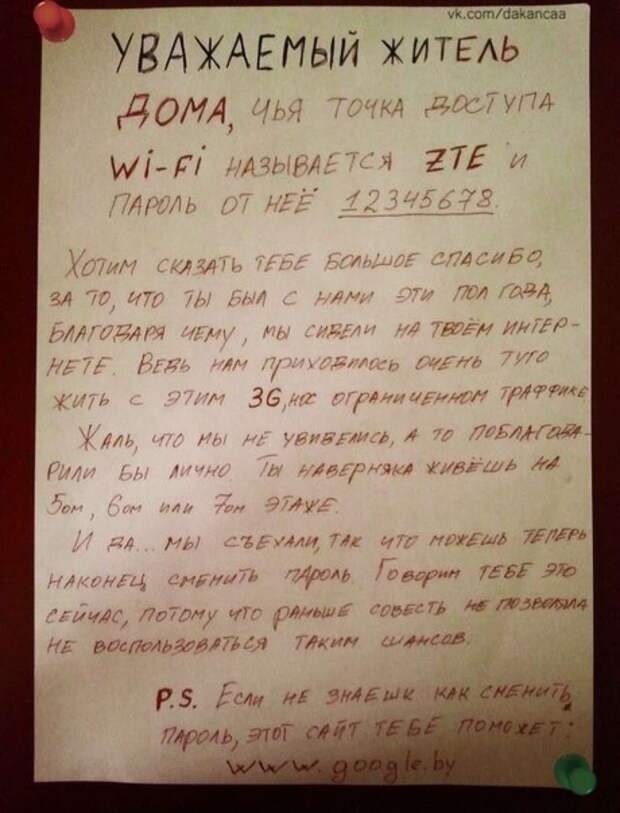 vk.com/dakancaa
УВАЖАЕМЫЙ ЖИТЕЛЬ
ДОМА, ЧЬЯ ТОЧКА ДОСТУПА
Wi-Fi НАЗЫВАЕТСЯ ZTE И
ПАРОЛЬ ОТ НЕЁ 12345678.
ХОТИМ СКАЗАТЬ ТЕБЕ БОЛЬШОЕ СПАСИБО,
ЗА ТО, ЧТО ТЫ БЫЛ С НАМИ ЭТИ ПОЛ ГОДА,
БЛАГОДАРЯ ЧЕМУ, МЫ СИДЕЛИ НА ТВОЁМ ИНТЕР-
НЕТЕ. ВЕДЬ НАМ ПРИХОДИЛОСЬ ОЧЕНЬ ТУГО
ЖИТЬ С ЭТИМ 3G, ОГРАНИЧЕННОМ ТРАФФИКЕ
ЖАЛЬ, ЧТО МЫ НЕ УВИДЕЛИСЬ, А ТО ПОБЛАГОДА-
РИЛИ БЫ ЛИЧНО. ТЫ НАВЕРНЯКА ЖИВЁШЬ НА
5ом, 6ом ИЛИ 7ом ЭТАЖЕ.
И ДА... МЫ СЪЕХАЛИ, ТАК ЧТО МОЖЕШЬ ТЕПЕРЬ
НАКОНЕЦ СМЕНИТЬ ПАРОЛЬ. ГОВОРИМ ТЕБЕ ЭТО
СЕЙЧАС, ПОТОМУ ЧТО РАНЬШЕ СОВЕСТЬ НЕ ПОЗВОЛЯЛА
НЕ ВОСПОЛЬЗОВАТЬСЯ ТАКИМ ШАНСОВ.
P.S. ЕСЛИ НЕ ЗНАЕШЬ КАК СМЕНИТЬ
ПАРОЛЬ, ЭТОТ САЙТ ТЕБЕ ПОМОЖЕТ:
www.google.by